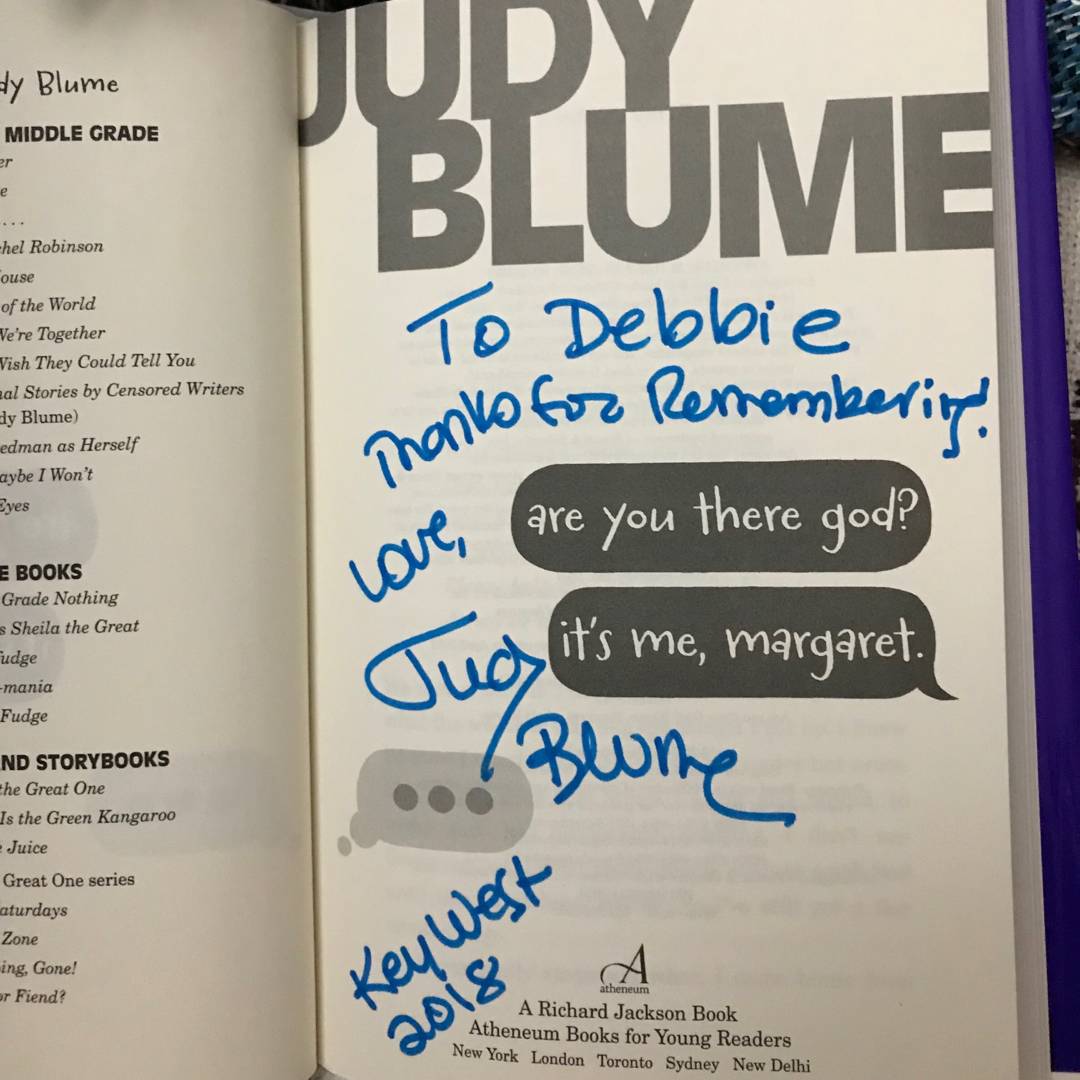 dy Blume
MIDDLE GRADE
er
e
. . .
hel Robinson
ouse
of the World
We're Together
Wish They Could Tell You
nal Stories by Censored Writers
dy Blume)
edman as Herself
aybe I Won't
Eyes
E BOOKS
Grade Nothing
s Sheila the Great
udge
-mania
Fudge
ND STORYBOOKS
the Great One
Is the Green Kangaroo
Juice
Great One series
aturdays
Zone
ing, Gone!
or Fiend?
JUDY
BLUME
To Debbie
Thanks for Remembering!
are you there god?
it's me, margaret.
Love,
Judy
Blume
Key West
2018
A
atheneum
A Richard Jackson Book
Atheneum Books for Young Readers
New York London Toronto Sydney New Delhi